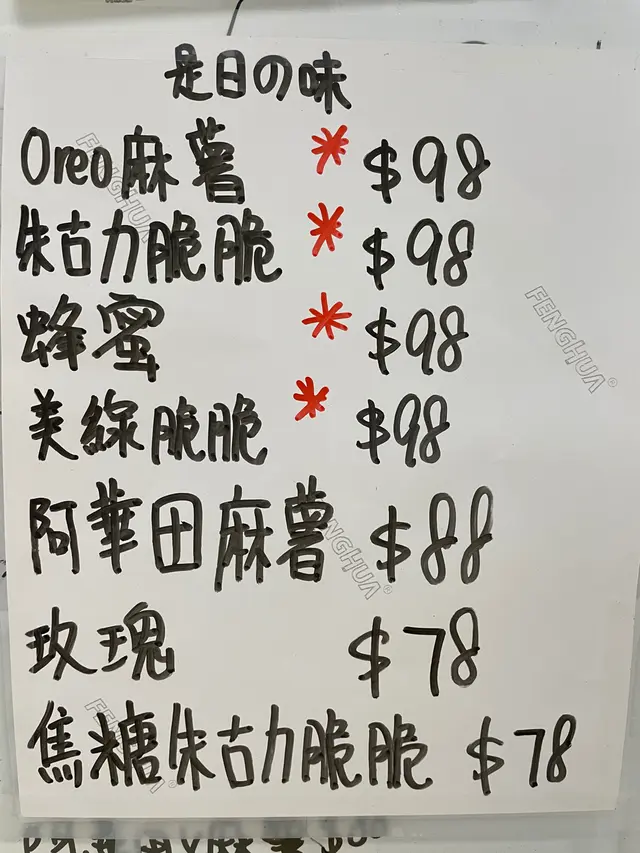 是日の味
Oreo麻薯 * $98
朱古力脆脆 * $98
蜂蜜 * $98
美綠脆脆 * $98
阿華田麻薯 $88
玫瑰 $78
焦糖朱古力脆脆 $78
FENGHUA
FENGHUA
FENGHUA
FENGHUA